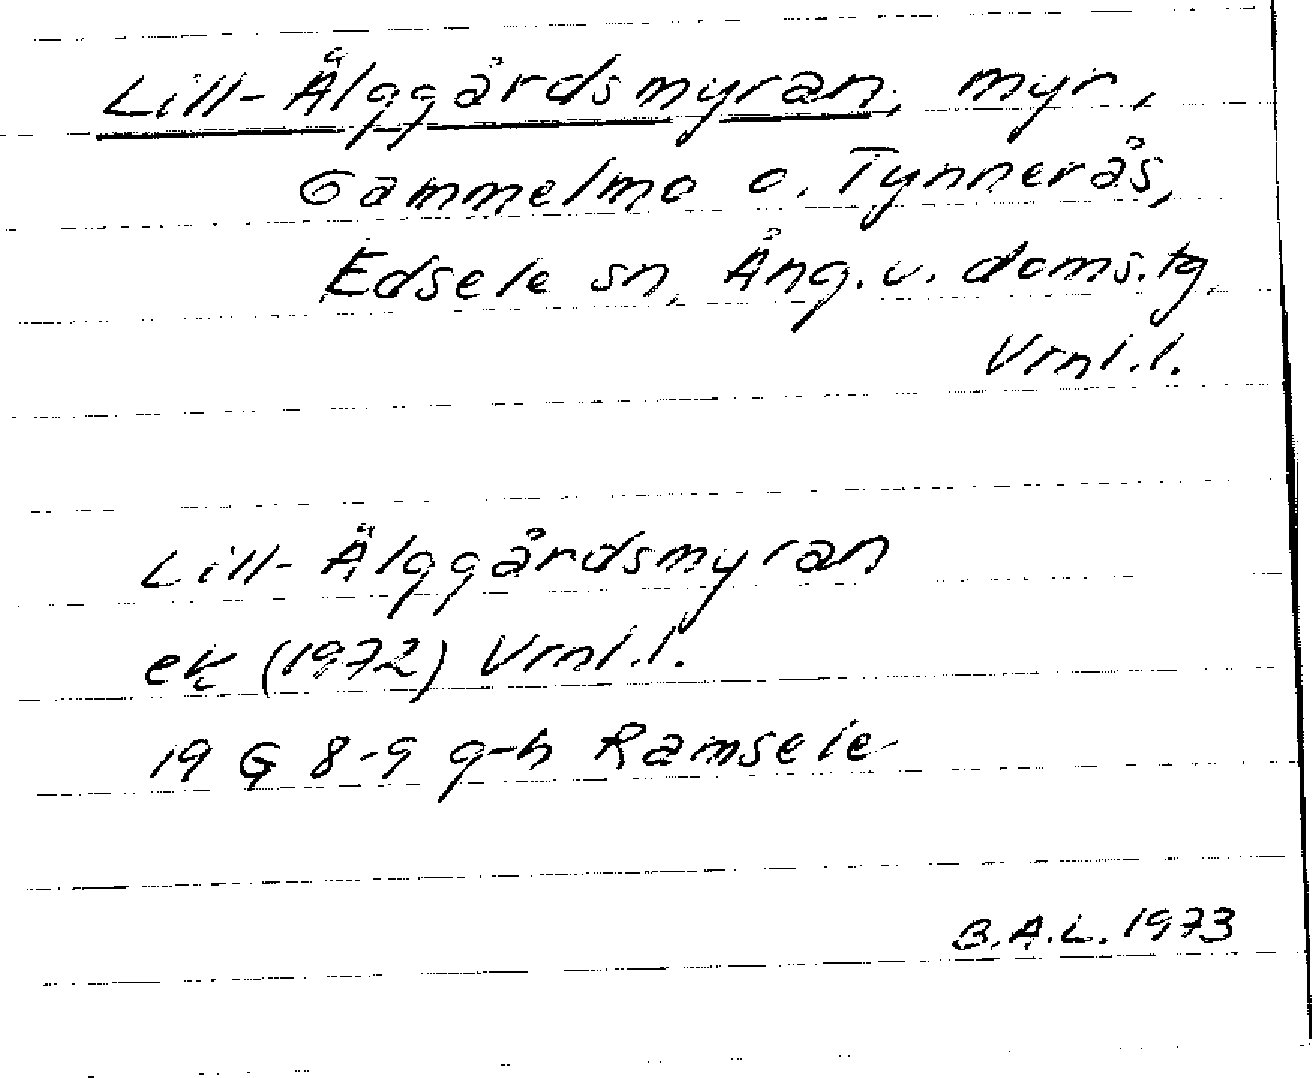 Lill-Älggårdsmyran, myr,
Gammelmo o. Tynnerås,
Edsele sn, Ång. v. doms.tg.
Vrnl.l.
Lill-Älggårdsmyran
ek (1972) Vrnl.l.
19 G 8-9 g-h Ramsele
B.A.L. 1973